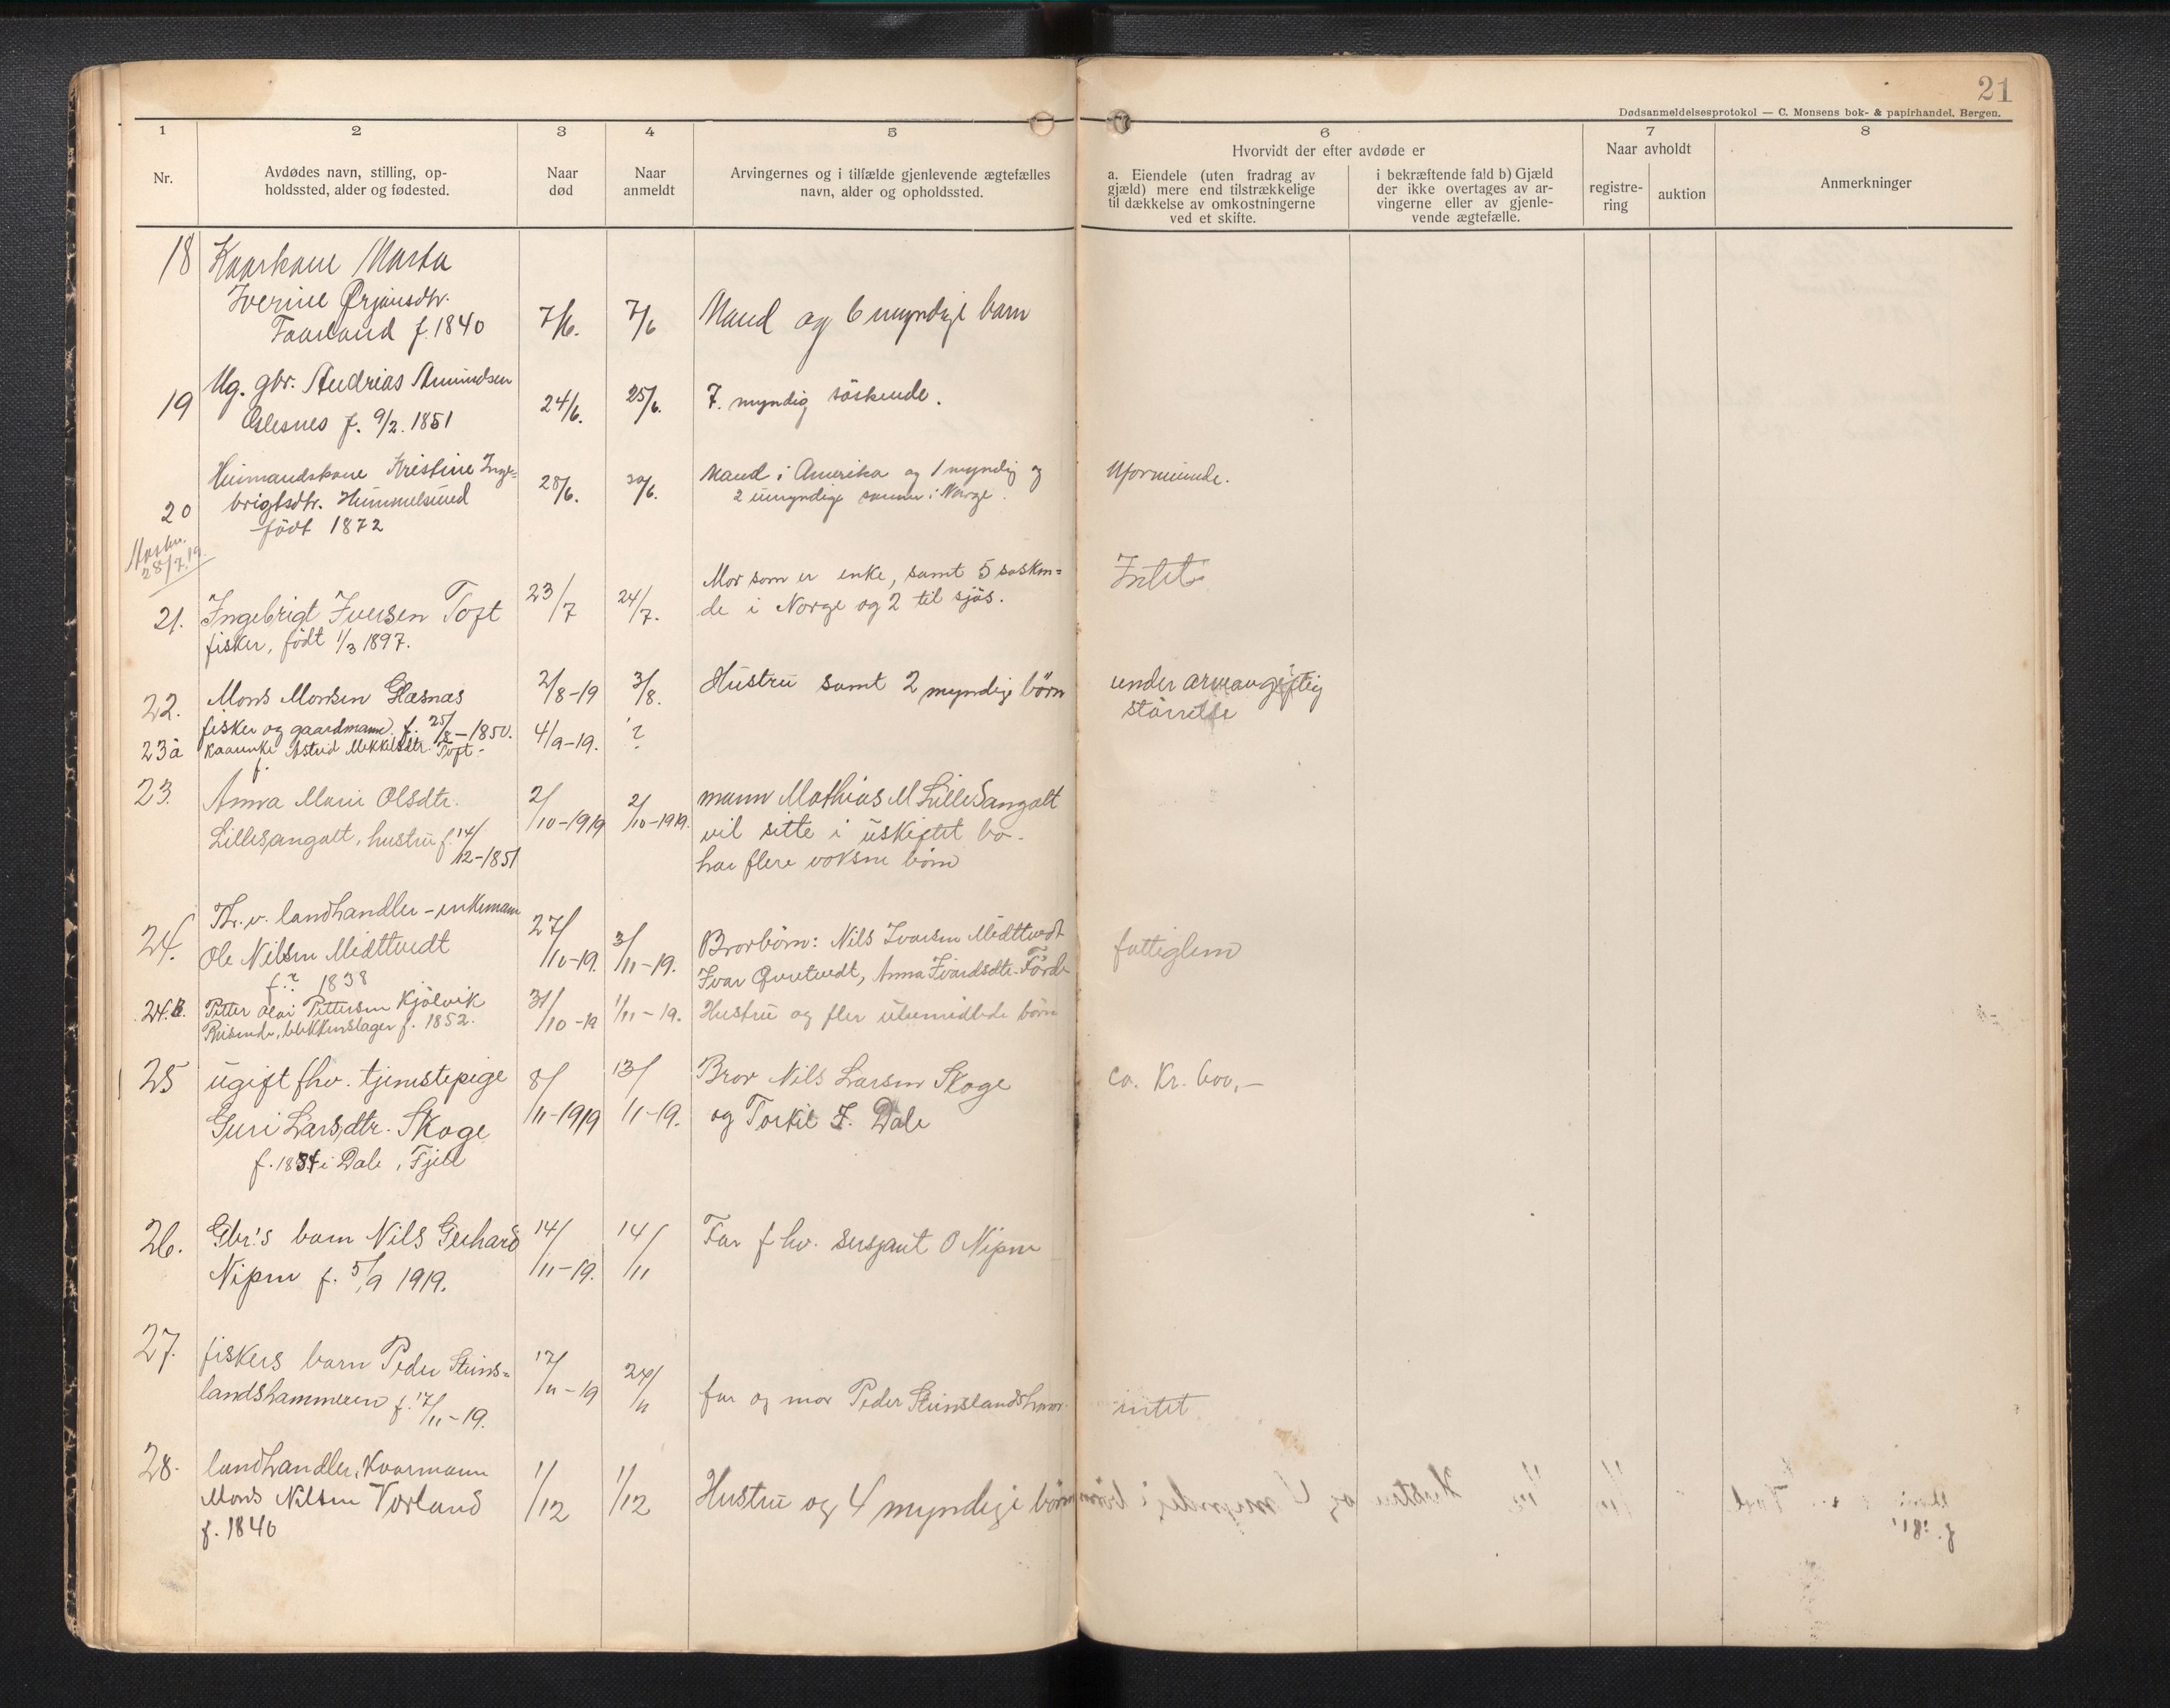 21
Dødsanmeldelsesprotokol — C. Monsens bok- & papirhandel, Bergen.
1
2
3
4
5
6
7
8
Nr.
Avdødes navn, stilling, op-
holdssted, alder og fødested.
Naar
død
Naar
anmeldt
Arvingernes og i tilfælde gjenlevende ægtefælles
navn, alder og opholdssted.
Hvorvidt der efter avdøde er
a. Eiendele (uten fradrag av
gjæld) mere end tilstrækkelige
til dækkelse av omkostningerne
ved et skifte.
i bekræftende fald b) Gjæld
der ikke overtages av ar-
vingerne eller av gjenle-
vende ægtefælle.
Naar avholdt
registre-
ring
auktion
Anmerkninger
18 Kaarkone Marta
Iverine Ørjansdtr.
Faarland f. 1840 7/6. 7/6 Mand og 6 myndige barn
Ug. gbr. Andrias Amundsen
19 Eslesnes f. 9/2. 1851 24/6. 25/6. 7. myndig söskende.
Husmandskone Kristine Inge-
20 brigtsdtr. Hummelsund
födt 1872
28/6. 30/6. Mand i Amerika og 1 myndig og
2 umyndige sønner i Norge.
Uformuende.
28/7.19.
21. Ingebrigt Iversen Toft
fisker, födt 1/3 1897.
23/7 24/7. Mor som er enke, samt 5 søskn=
de i Norge og 2 til sjøs.
Intet
22. Mons Monsen Glæsnæs
fisker og gaardmann. f. 25/8 – 1850.
2/8-19 3/8. Hustru samt 2 myndige börn
under arveavgiftig
störrelse
23a Kaarenke Astrid Mikkelsdtr. Toft -
f.
4/9-19. ?
23. Anna Marie Olsdtr.
Lillesangolt, hustru f. 14/12-1851
2/10-1919 2/10-1919. mann Mathias M Lillesangolt
vil sitte i uskiftet bo.
har flere voksne börn
Fh. v. landhandler - enkemann
24. Ole Nilsen Midttvedt
f. ? 1838
27/10-19. 3/11-19. Brorbörn: Nils Ivarsen Midttvedt
Ivar Qvretvedt, Anna Ivarsdtr.Förde
fattiglem
24.B. Petter Olai Pettersen Kjölvik
Reisende, blikkenslager f. 1852.
31/10-19 1/11-19. Hustru og fler börn
25 ugift fhv. tjenstepige
Guri Larsdtr. Skoge
f. 1834 i Dale, Fjell
8/11-1919 13/11-19. Bror Nils Larsen Skoge
og Torkil I. Dale
ca. Kr. 600,-
26. Gbr's barn Nils Gerhard
Nipen f. 5/9 1919.
14/11-19. 14/11 Far fhv. sersjant O Nipen
27. fiskers barn Peder Steins=
landshammeren f. 17/11-19.
17/11-19 24/11 far og mor Peder Steinslandshmr.
intet
28. landhandler, Kaarmann
Mons Nilsen Vorland
f. 1840
1/12 1/12 Hustru og 4 myndige börn